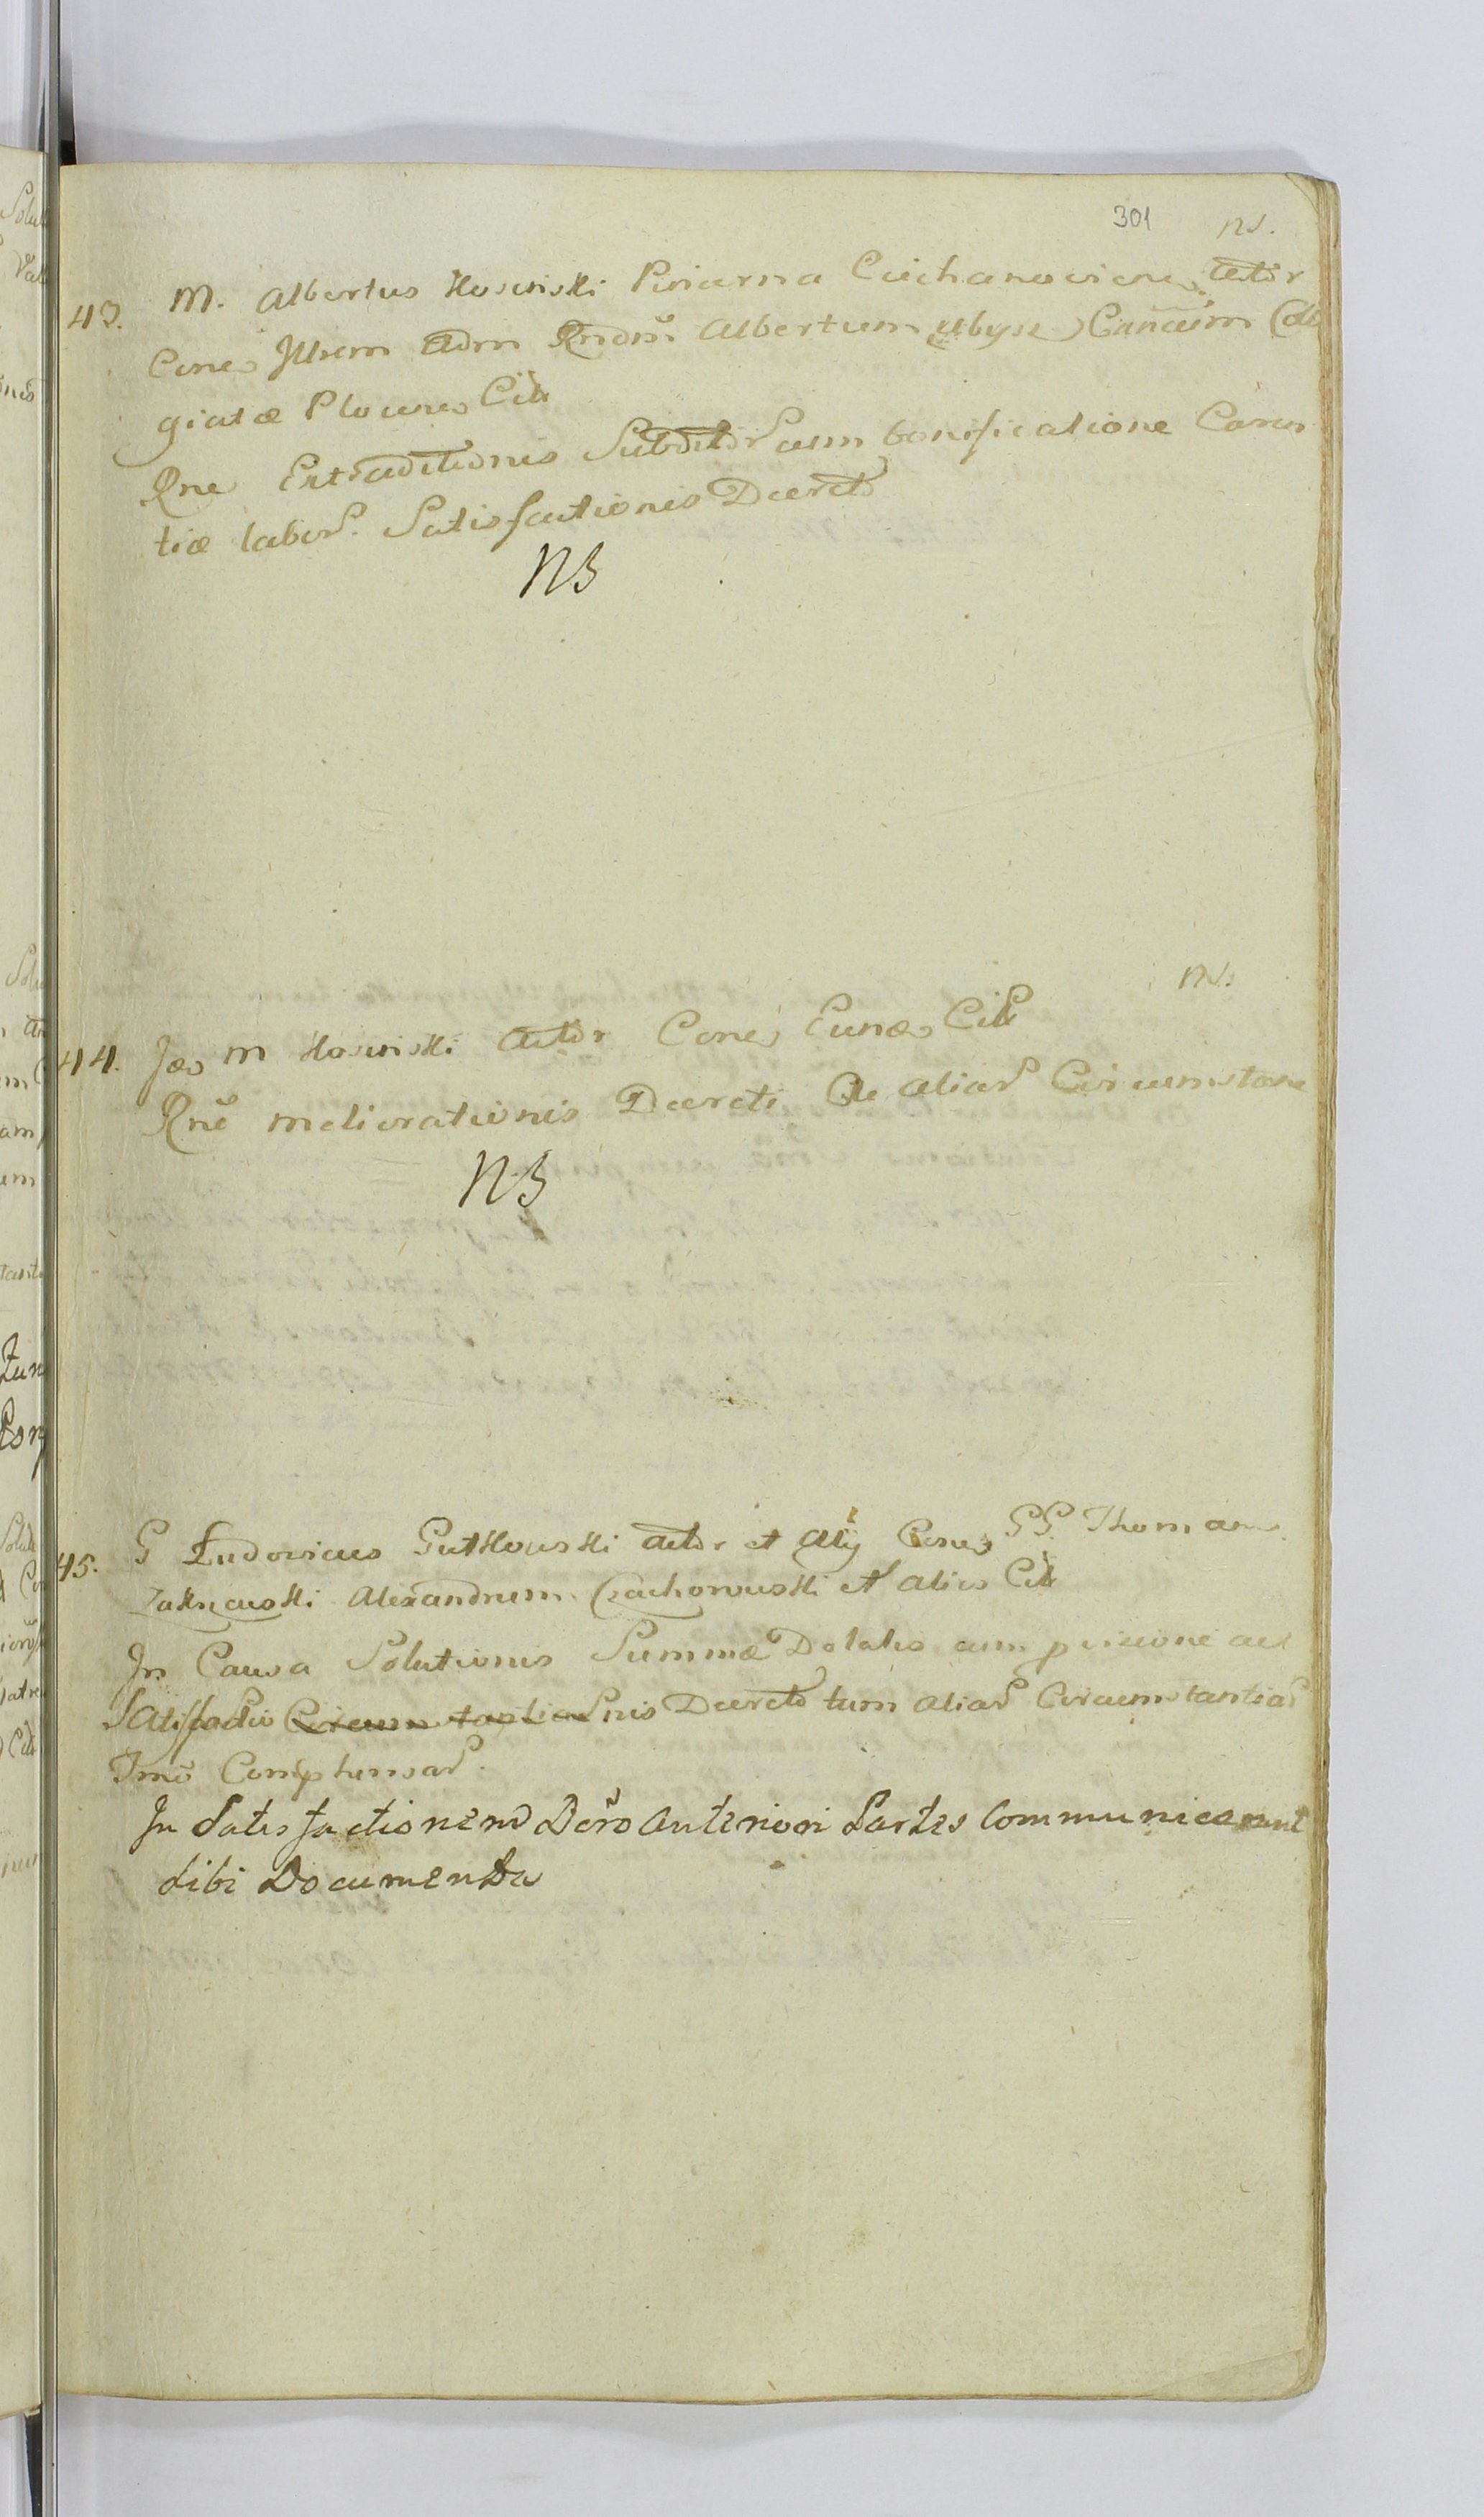 301 ns.
43. M. Albertus Kosinski Pincerna Ciechanoviens. Actor
Cone Illrem Adm Rndm Albertum Cancum Colle
giatæ Plocens Cit
Rne Extraditionis Subditor cum bonificatione Caren
tiæ labor. Satisfactionis Decreto
NB
ns.
44. M Kosinski Actor Cone Eund Cit
Rne meliorationis Decreti aliar Circumstanc
NB
45. G Ludovicus Gutkowski Actor et Alij Cone GG Thomam
Alexandrum Czachorowski et alios Cit
In Causa Solutionis Summæ Dotalis cum provisione ac
Satisfactio Circumstantiar nis Decreto tum aliar Circumstantiar
Imo Comphensar.
In Satisfactionem Dcro Anteriori Partes Communicarunt
sibi Documenta